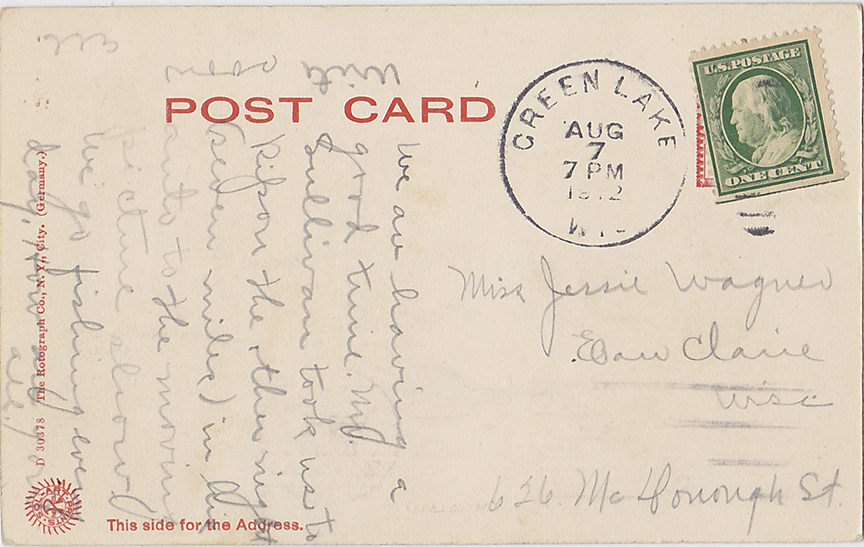 POST CARD
GREEN LAKE
AUG
7
7 PM
1912
WIS
U.S. POSTAGE
ONE CENT
Miss Jessie Wagner
Eau Claire
Wisc
626 McDonough St.
We are having a
good time. Mr.
Sullivan took us to
Ripon the other night
(seven miles) in his
auto to the moving
picture show.
We go fishing every
day, how are
all.
Write
soon
all.
D 30378 The Rotograph Co., N. Y. City. (Germany.)
This side for the Address.